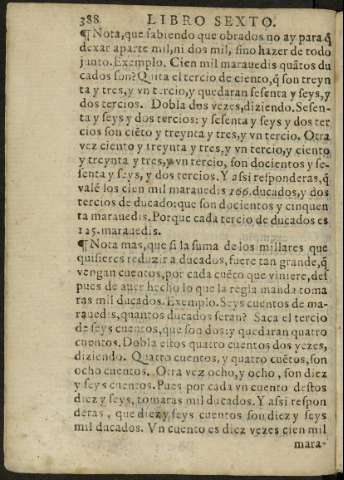 388 LIBRO SEXTO.
¶Nota, que sabiendo que obrados no ay para q̃
dexar aparte mil, ni dos mil, sino hazer de todo
junto. Exemplo. Cien mil marauedis quãtos du
cados son? Quita el tercio de ciento, q̃ son treyn
ta y tres, y vn tercio, y quedaran sesenta y seys, y
dos tercios. Dobla dos vezes, diziendo. Sesen-
ta y seys y dos tercios: y sesenta y seys y dos ter
cios son ciẽto y treynta y tres, y vn tercio. Otra
vez ciento y treynta y tres, y vn tercio, y ciento
y treynta y tres, y vn tercio, son docientos y se-
senta y seys, y dos tercios. Y assi responderas, q̃
valẽ los cien mil marauedis 266. ducados, y dos
tercios de ducado: que son docientos y cinquen
ta marauedis. Porque cada tercio de ducados es
125. marauedis.
¶Nota mas, que si la suma de los millares que
quisieres reduzir a ducados, fuere tan grande, q̃
vengan cuentos, por cada cuẽto que viniere, des
pues de auer hecho lo que la regla manda toma
ras mil ducados. Exemplo. Seys cuentos de ma-
rauedis, quantos ducados seran? Saca el tercio
de seys cuentos, que son dos: y quedaran quatro
cuentos. Dobla estos quatro cuentos dos vezes,
diziendo. Quatro cuentos, y quatro cuẽtos, son
ocho cuentos. Otra vez ocho, y ocho, son diez
y seys cuentos. Pues por cada vn cuento destos
diez y seys, tomaras mil ducados. Y assi respon
deras, que diez y seys cuentos son diez y seys
mil ducados. Vn cuento es diez vezes cien mil
mara-